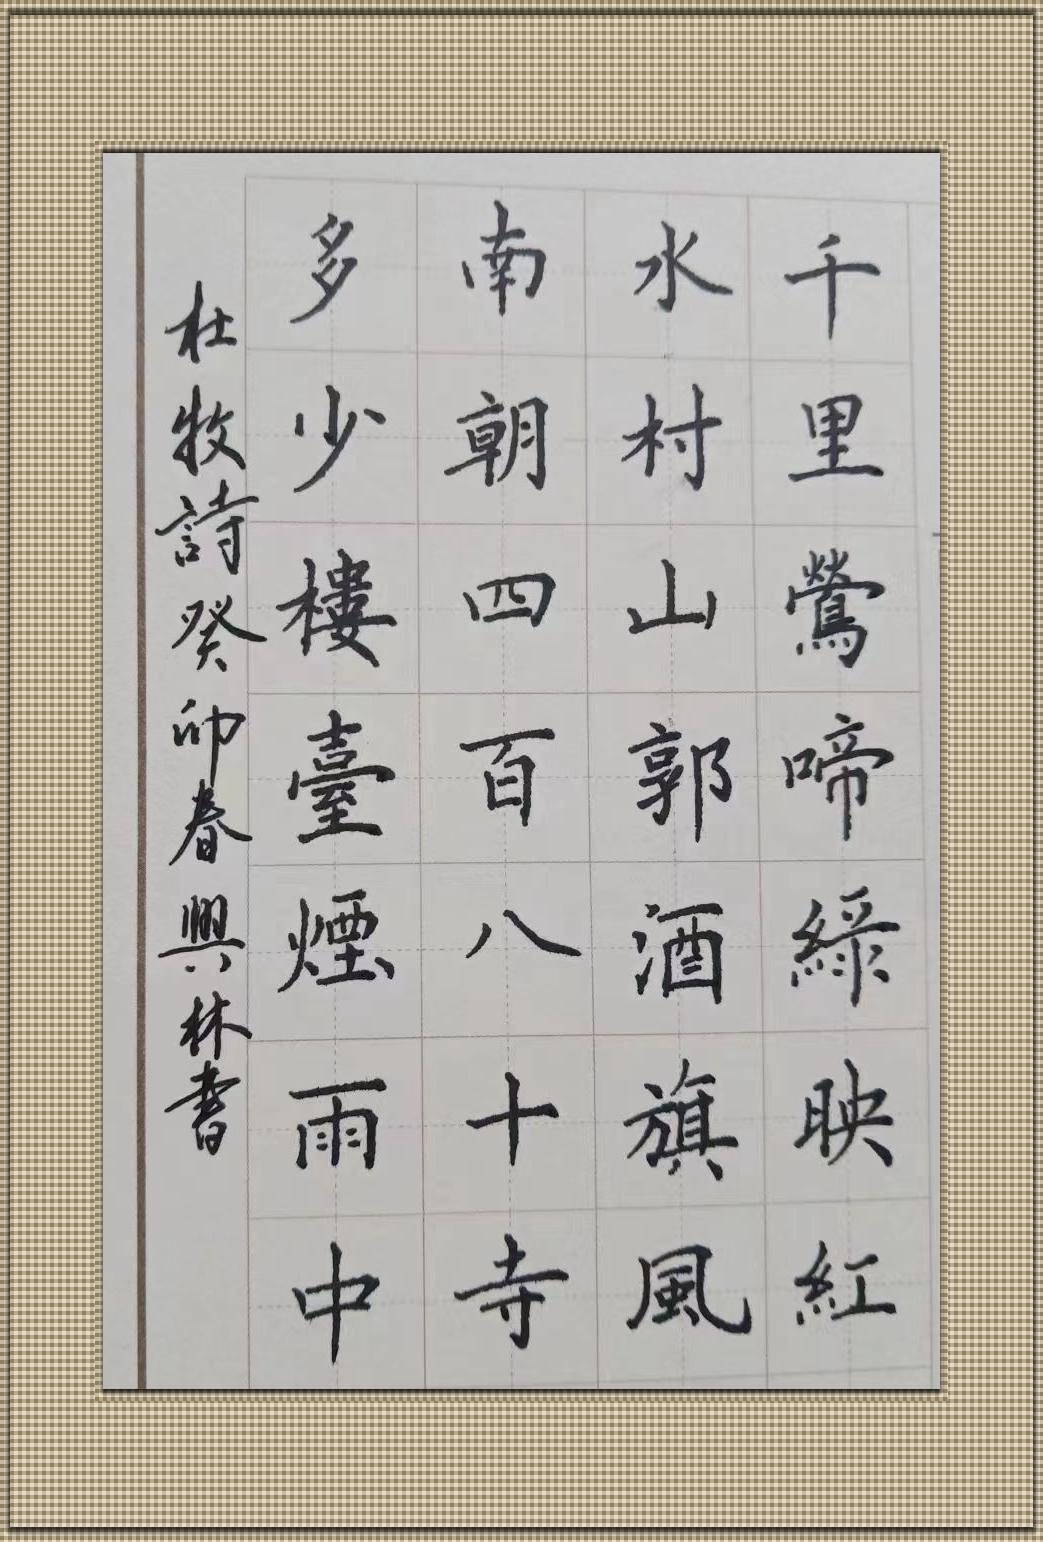 千里鶯啼綠映紅
水村山郭酒旗風
南朝四百八十寺
多少樓臺煙雨中
杜牧詩癸卯春興林書